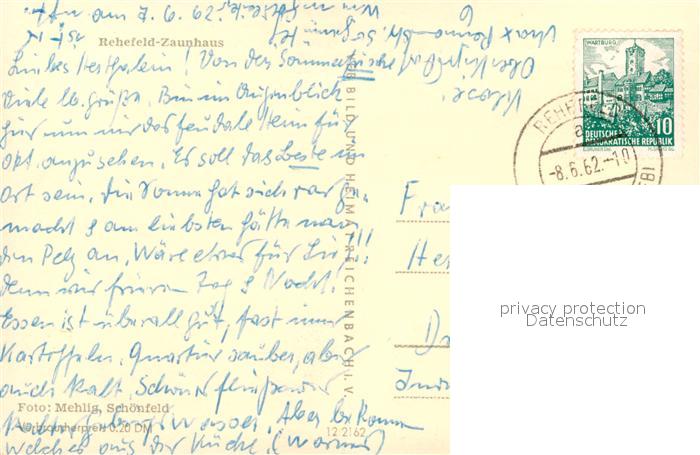 am 7.6.62.
Rehefeld-Zaunhaus
Liebes Hesthalein! Von der Sommerfrische
viele lb. Grüße. Bin im Augenblick
hier um mir das feudale Heim für
Okt. anzusehen. Es soll das beste im
Ort sein. Die Sonne hat sich rar ge-
macht & am liebsten hätte man
den Pelz an. Wäre etwas für Sie!!!
denn wir frieren Tag & Nacht.
Essen ist überall gut, fast immer
Kartoffeln. Quartier sauber, aber
auch kalt. Schönes fließendes
Foto: Mehlig, Schönfeld
kaltes wasser. Aber bekomme
Verbraucherpreis 0.20 DM
welches aus der Küche. (warmes)
12 2162
BILD UND HEIMAT REICHENBACH I. V.
WARTBURG
10
DEUTSCHE
DEMOKRATISCHE REPUBLIK
REHEFELD
-8.6.62.-10
Fra
He
D
privacy protection
Datenschutz